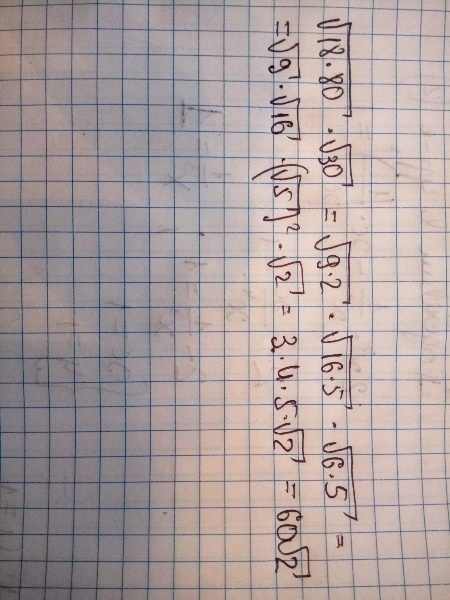 √18·80 · √30 = √9·2 · √16·5 · √6·5 =
= √9 · √16 · (√5)² · √2 = 3·4·5·√2 = 60√2